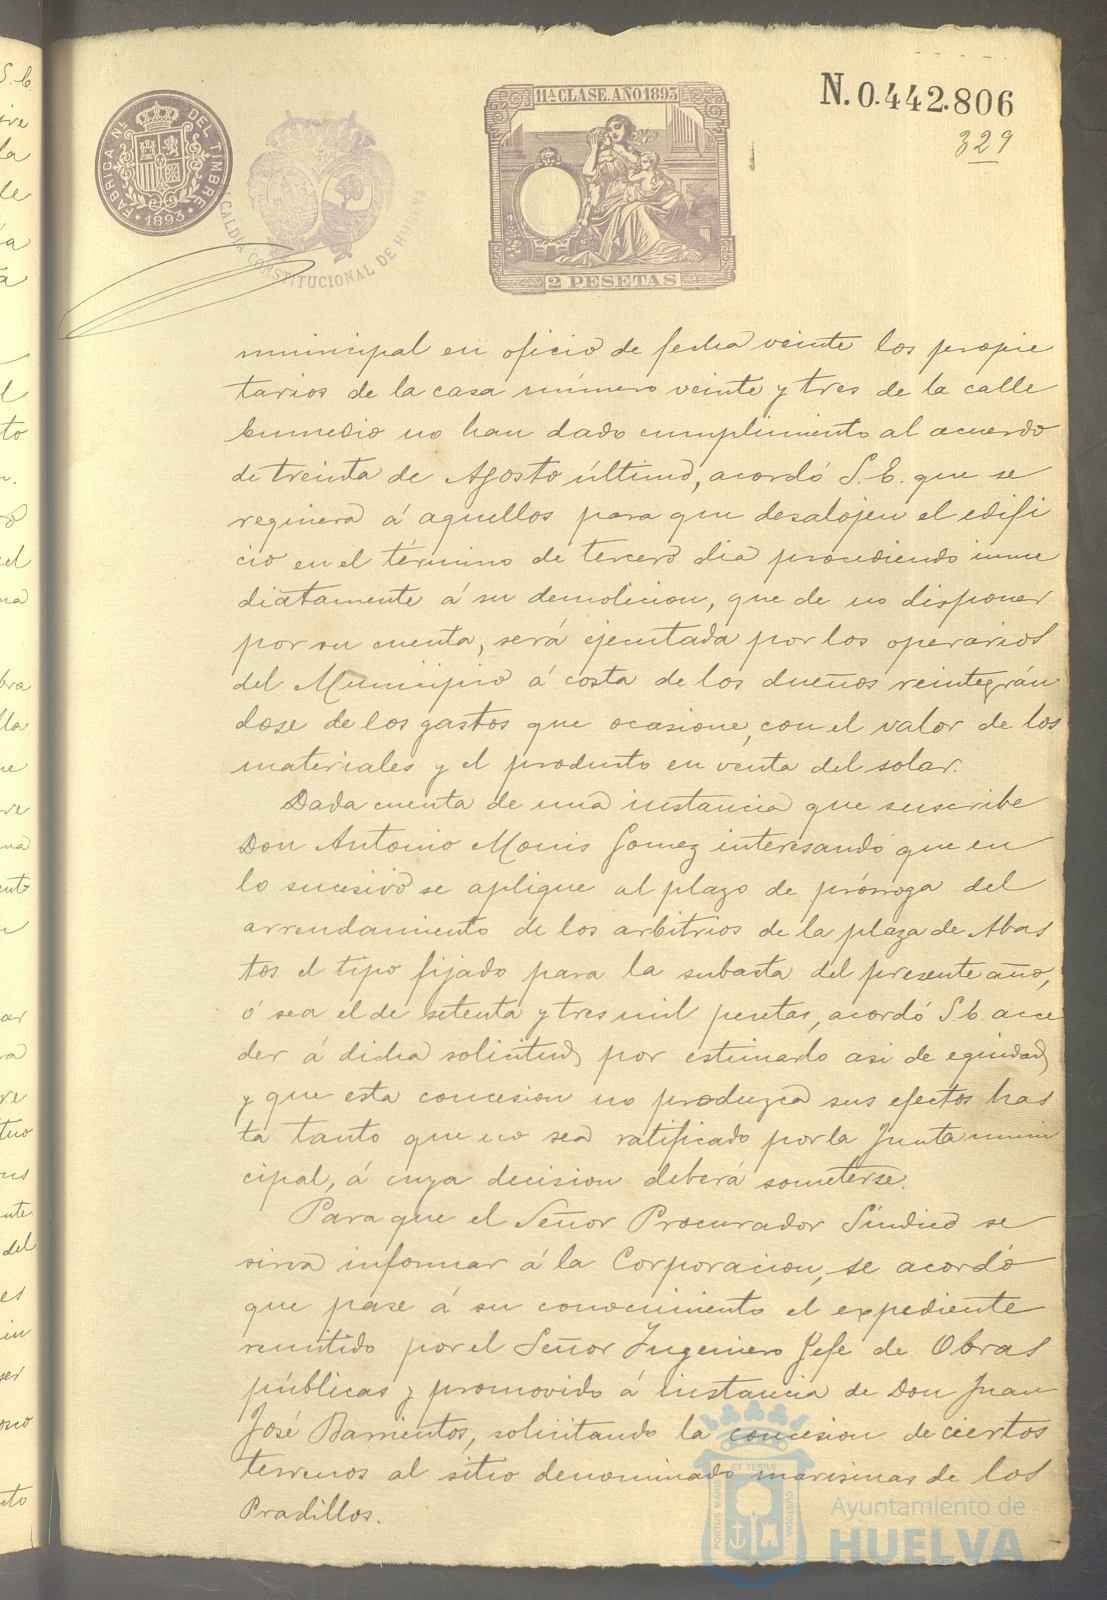 N. 0.442.806
329
11ª CLASE. AÑO 1893
2 PESETAS
FABRICA Nal DEL TIMBRE
1893
ALCALDIA CONSTITUCIONAL DE HUELVA
municipal en oficio de fecha veinte los propie
tarios de la casa número veinte y tres de la calle
Enmedio no han dado cumplimiento al acuerdo
de treinta de Agosto último, acordó S.E. que se
requiera á aquellos para que desalojen el edifi
cio en el término de tercero dia procediendo inme
diatamente á su demolicion, que de no disponer
por su cuenta, será ejecutada por los operarios
del Municipio á costa de los dueños reintegrán
dose de los gastos que ocasione, con el valor de los
materiales y el producto en venta del solar.
Dada cuenta de una instancia que suscribe
Don Antonio Monis Gomez interesando que en
lo sucesivo se aplique al plazo de prórroga del
arrendamiento de los arbitrios de la plaza de Abas
tos el tipo fijado para la subasta del presente año,
ó sea el de setenta y tres mil pesetas, acordó S.E. acce
der á dicha solicitud, por estimarlo asi de equidad,
y que esta concesion no produzca sus efectos has
ta tanto que no sea ratificado por la Junta muni
cipal, á cuya decision deberá someterse.
Para que el Señor Procurador Síndico se
sirva informar á la Corporacion, se acordó
que pase á su conocimiento el expediente
remitido por el Señor Ingeniero Gefe de Obras
públicas y promovido á instancia de Don Juan
José Barrientos, solicitando la concesion de ciertos
terrenos al sitio denominado marismas de los
Pradillos.
PORTUS MARIS ET TERRAE CUSTODIA
Ayuntamiento de
HUELVA